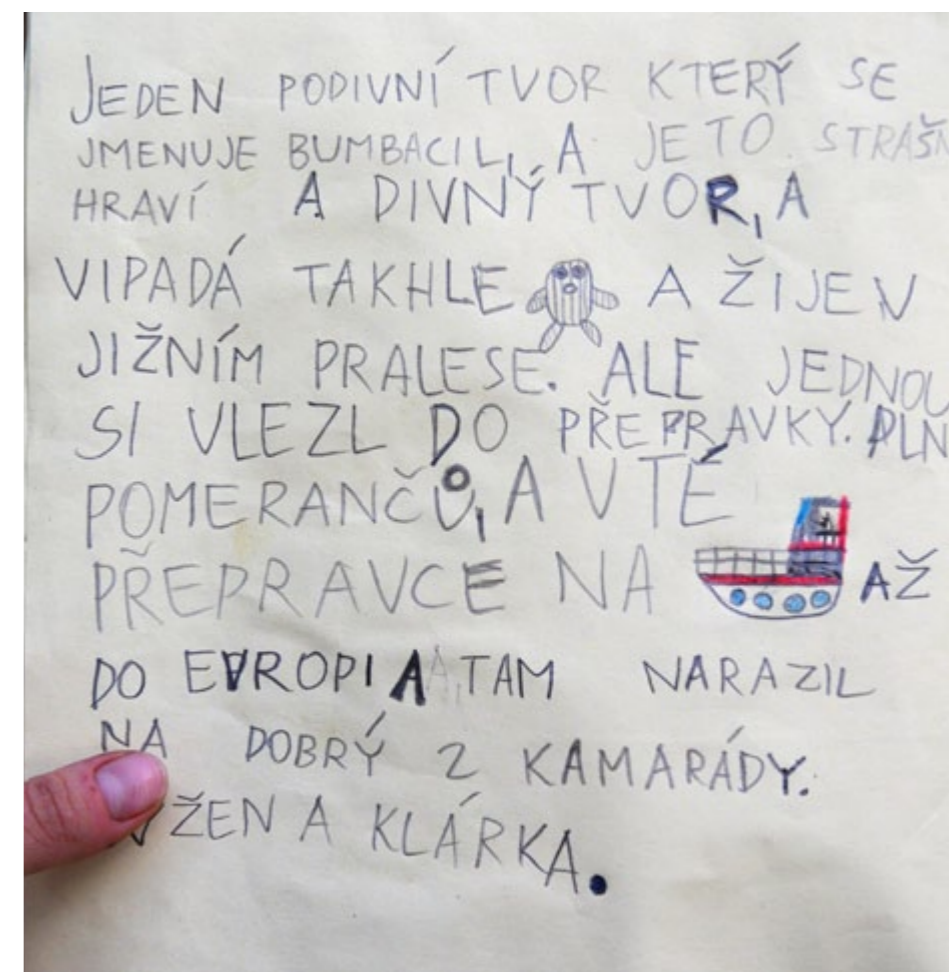 JEDEN PODIVNÍ TVOR KTERÝ SE
JMENUJE BUMBACIL, A JETO STRAŠN
HRAVÍ A DIVNÝ TVOR, A
VIPADÁ TAKHLE A ŽIJE V
JIŽNÍM PRALESE. ALE JEDNOU
SI VLEZL DO PŘEPRAVKY. PLN
POMERANČŮ, A VTÉ
PŘEPRAVCE NA AŽ
DO EVROPI A TAM NARAZIL
NA DOBRÝ 2 KAMARÁDY.
A KLÁRKA.